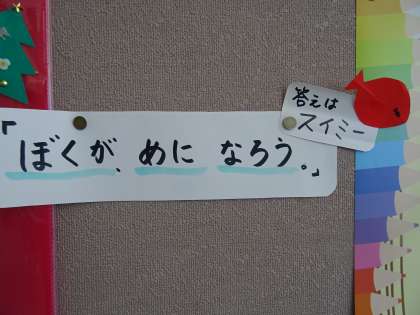 「ぼくが、めに なろう。」
答えは
スイミー